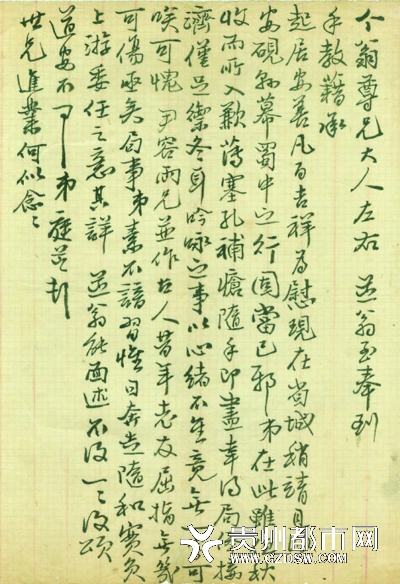 个翁尊兄大人左右 玉奉到
手教藉承
起居安善凡百吉祥為慰現在省城稍靖目
安硯外幕蜀中之行固當已耶弟在此雖秋
收而所入歉薄塞孔補瘡隨手即盡幸得局
濟僅足禦冬身吟咏之事以心緒不佳竟無 可
可愧 尹容兩兄並作古人昔年老友屈指無幾
可傷 矣局事弟素不諳習惟日奔走隨和實負
上游委任之意其詳 翁能面述不復一一復頌
道安不一 弟
世兄進業何似念念
贵州都市网
WWW.GZDSW.COM